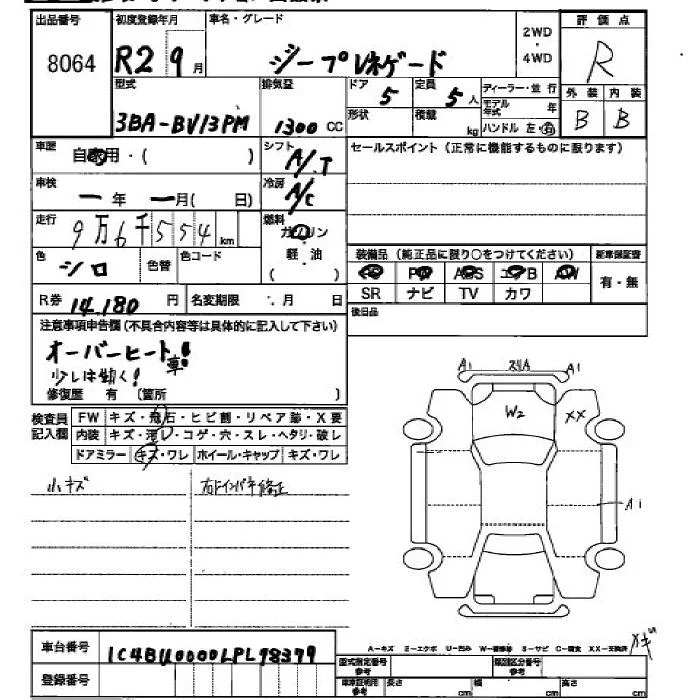 出品番号 初度登録年月 車名・グレード 2WD・4WD 評価点
8064 R2 9月 ジープレネゲード R
型式 排気量 ドア 定員 ディーラー・並行 外装 内装
3BA-BV13PM 1300cc 5 5人 モデル年式 年 B B
形状 積載 kg ハンドル 左・右
車歴 自家用・( ) シフト A/T セールスポイント(正常に機能するものに限ります)
車検 一年一月( 日) 冷房 A/C
走行 9万6千554km 燃料 ガソリン
軽・油
( )
色 シロ 色替 色コード
装備品(純正品に限り○をつけてください) 新車保証書
SR ナビ TV カワ 有・無
R券 14,180円 名変期限 ・月 日
後日品
注意事項申告欄(不具合内容等は具体的に記入して下さい)
オーバーヒート車!
少しは動く!
修復歴 有 (箇所 )
検査員記入欄 FW キズ・飛石・ヒビ割・リペア跡・X要
内装 キズ・汚レ・コゲ・穴・スレ・ヘタリ・破レ
ドアミラー キズ・ワレ ホイール・キャップ キズ・ワレ
小キズ 右ドインパネ修正
A1 A1
W2 XX
A1
A-キズ E-エクボ U-凹み W-補修跡 S-サビ C-腐食 XX-交換済
車台番号 1C4BU0000LPL98379
登録番号
型式指定番号参考 類別区分番号参考
車庫証明用参考 長さ cm 幅 cm 高さ cm